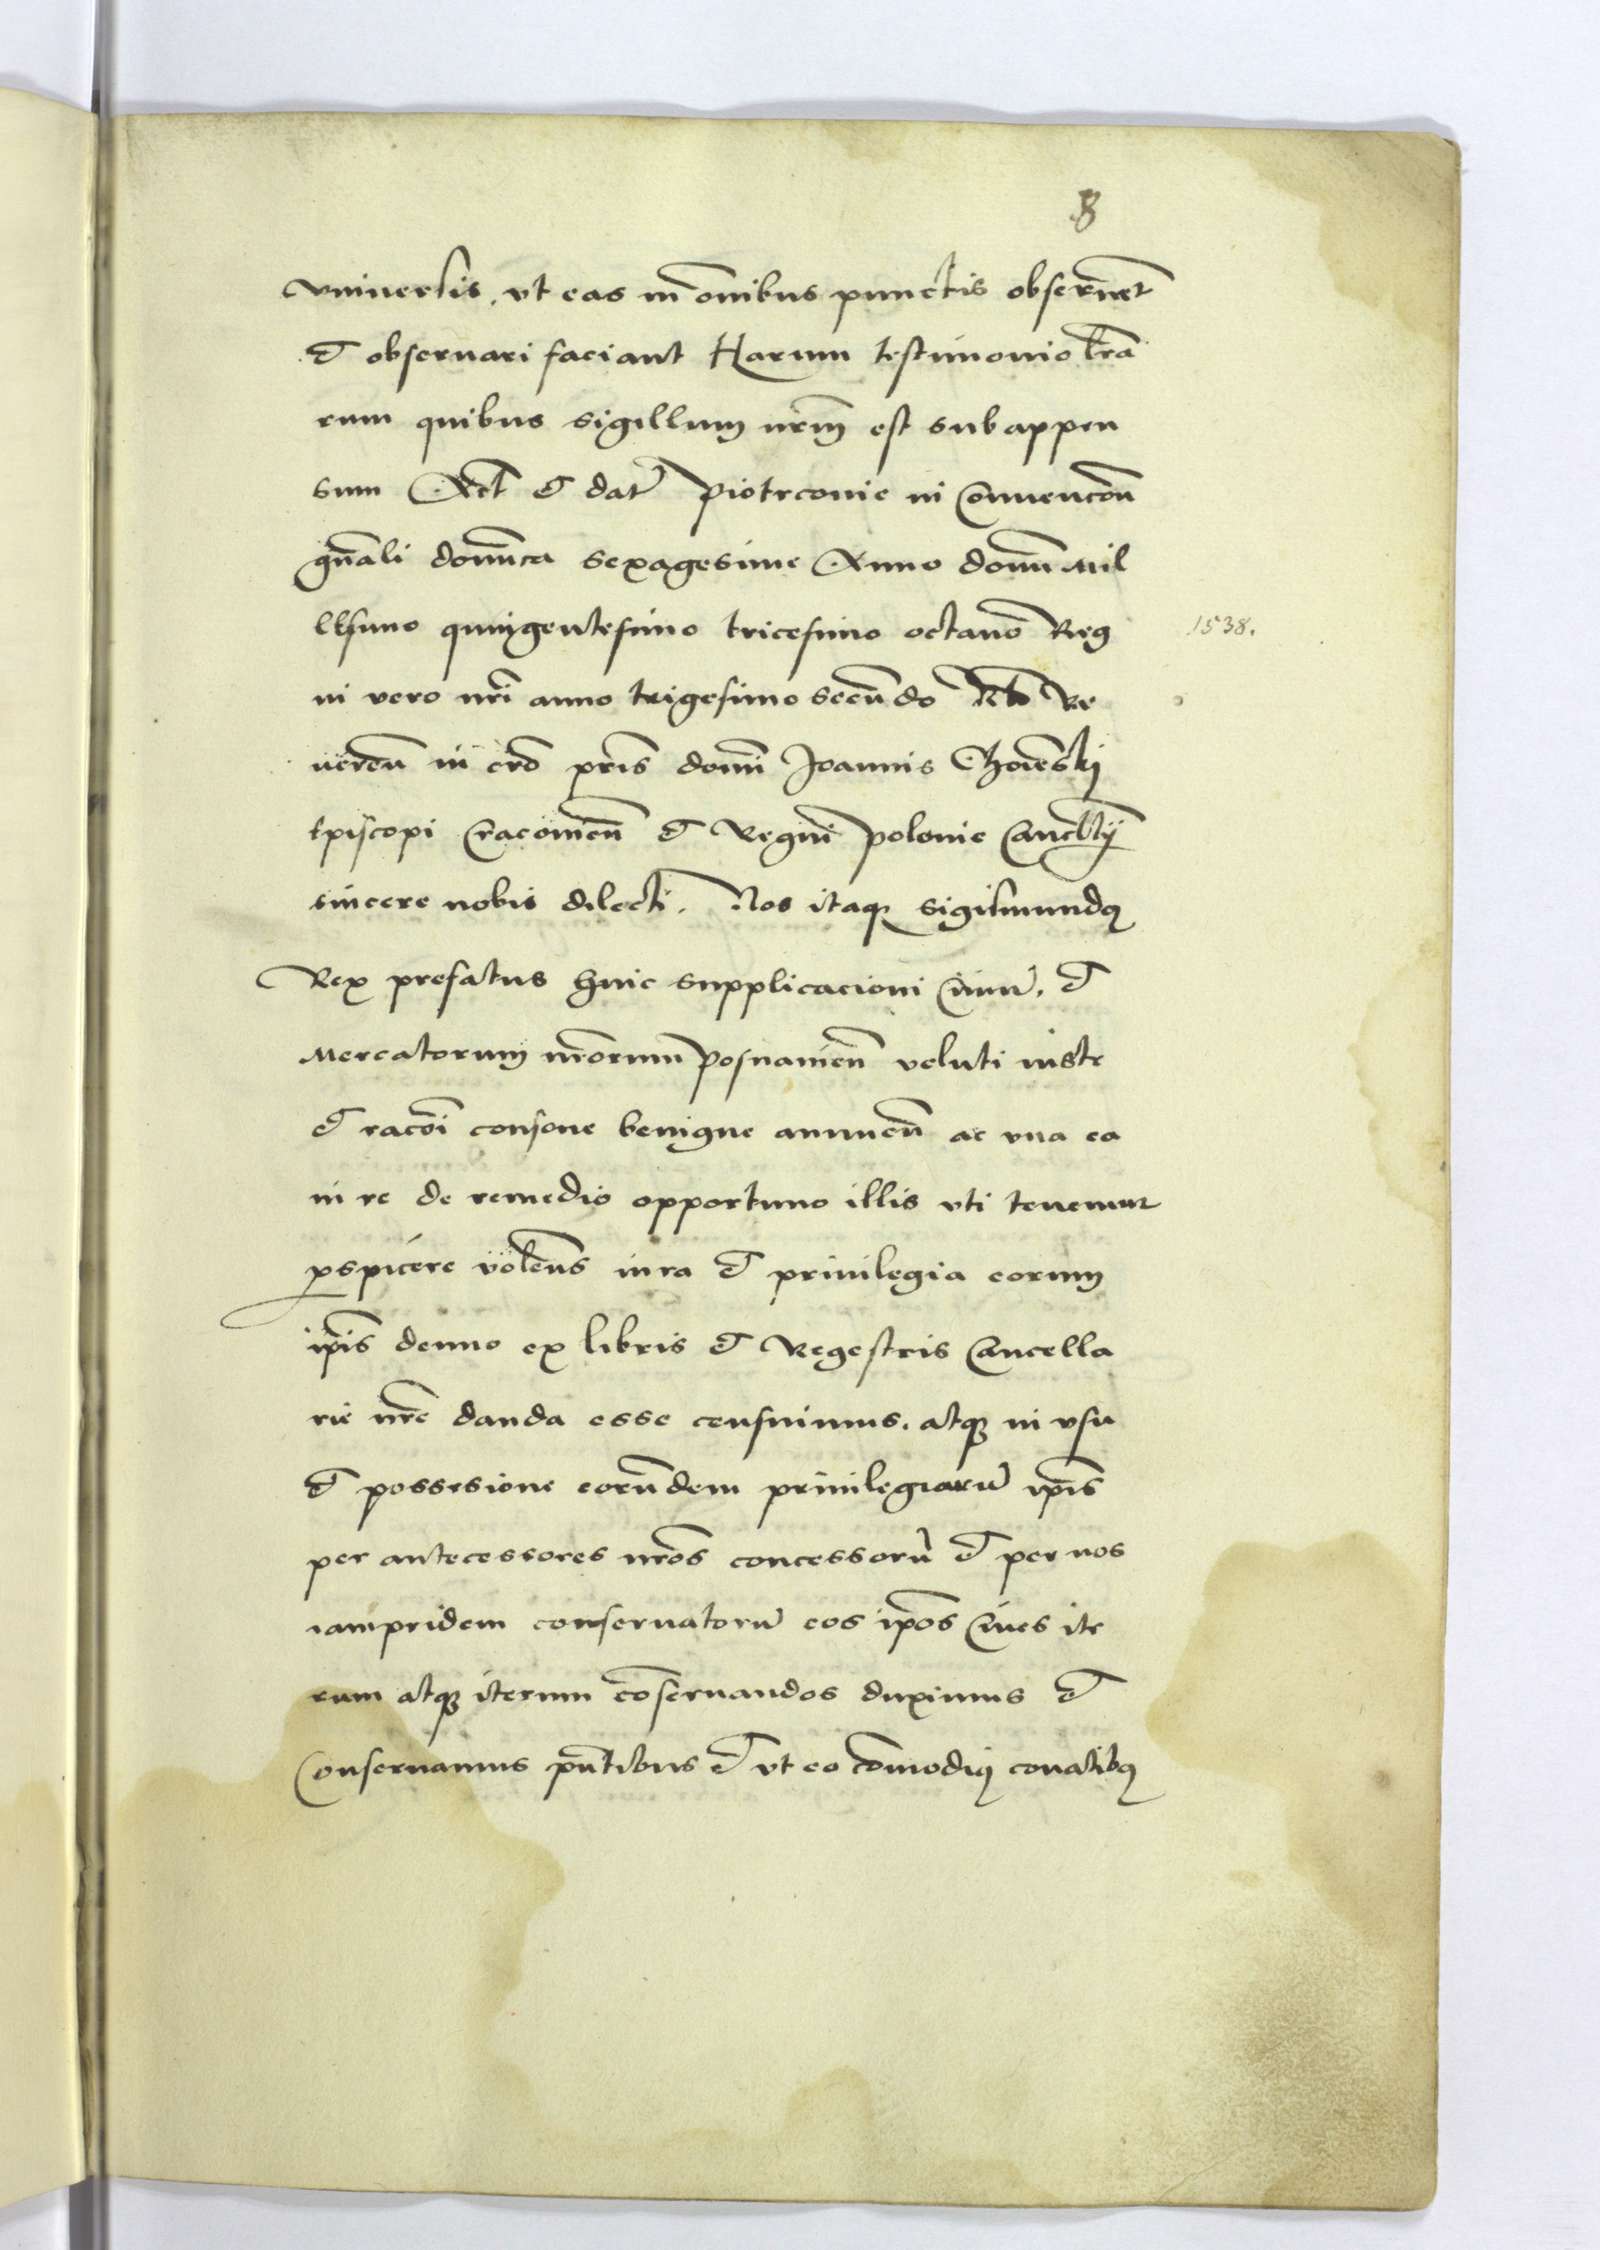 8
vniuersis, vt eas in o͞ibus punctis obserue͞t
et obseruari faciant Harum testimonio l͞ra
rum quibus sigillum nr͞m est subappen
sum Act et dat Piotrconie in Conuenco͞n
gn͞ali do͞nica sexagesime Anno domi͞ Mil
llesimo quingentesimo tricesimo octauo Reg
1538.
ni vero nr͞i anno trigesimo secu͞do Re
ueren͞ in cr͞o pr͞is domi͞ Joannis Choie͞skij
Episcopi Cracouien͞ et Regni Polonie Cancellrij
sincere nobis dilecti. Nos itaq; Sigismundus
Rex prefatus huic supplicacioni Ciuiu͞, et
Mercatorum nr͞orum Posnanien͞ veluti iuste
et raco͞i consone benigne annuen͞ ac vna ea
in re de remedio opportuno illis vti tenemur
perspicere volen͞s iura et priuilegia eorum
ip͞is denuo ex libris et Regestris Cancella
rie nr͞e danda esse censuimus, atq; in vsu
et possesione eoru͞dem priuilegiorum ip͞is
per antecessores nr͞os concessoru͞ et per nos
iampridem conseruatoru͞ eos ip͞os Ciues ite
rum atq; iterum co͞seruandos duximus et
Conseruamus pn͞tibus et vt eo co͞modius conatibus